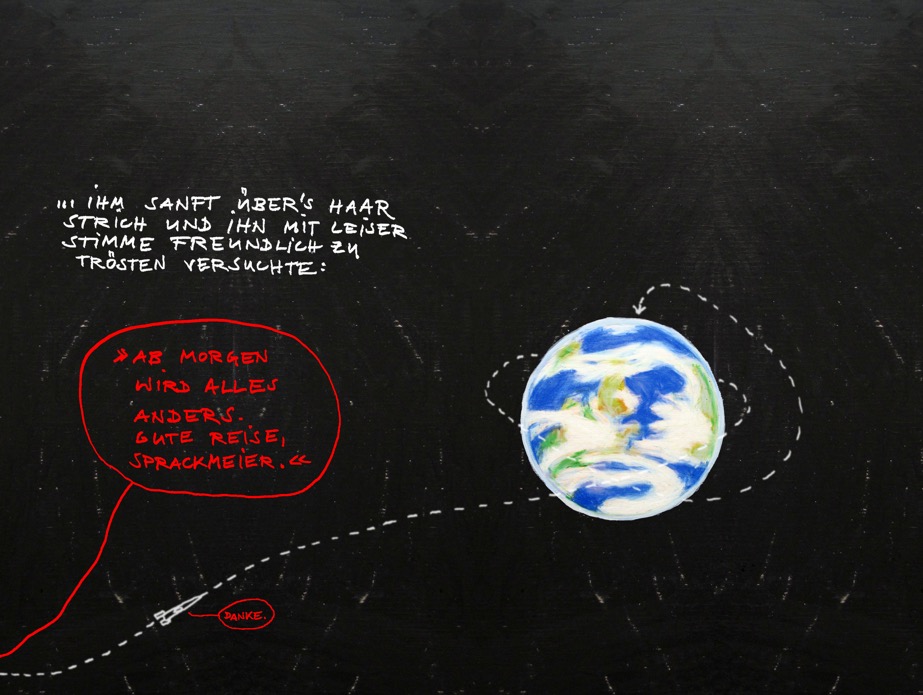 ... IHM SANFT ÜBER'S HAAR
STRICH UND IHN MIT LEISER
STIMME FREUNDLICH ZU
TRÖSTEN VERSUCHTE:
»AB MORGEN
WIRD ALLES
ANDERS.
GUTE REISE,
SPRACKMEIER.«
DANKE.